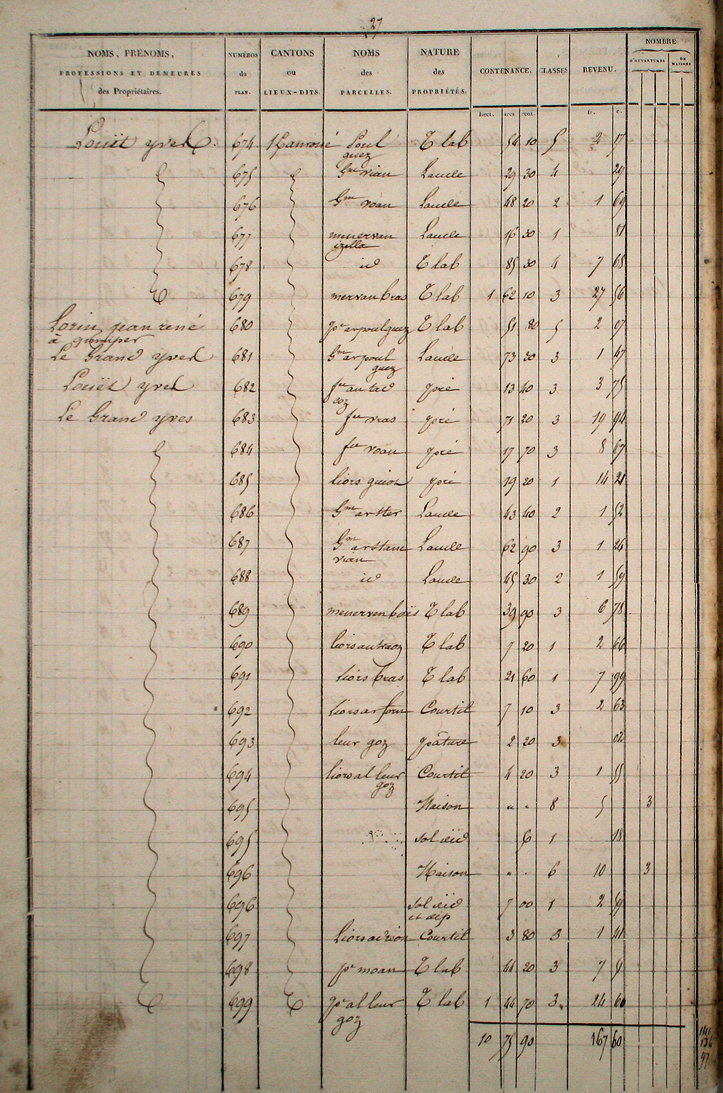 27
NOMS, PRÉNOMS, PROFESSIONS ET DEMEURES des Propriétaires. NUMÉROS du PLAN. CANTONS ou LIEUX-DITS. NOMS des PARCELLES. NATURE des PROPRIÉTÉS. CONTENANCE. CLASSES REVENU. NOMBRE
hect. ares cent. fr. c.
Louët yves 674 Poul guez T lab 54 10 5 2 17
675 Gm vian Lande 29 30 4 29
676 Gm voan Lande 48 20 2 1 69
677 menervan izella Lande 16 30 1 81
678 id T lab 85 30 4 7 68
679 mervan bras T lab 1 62 10 3 27 56
Lorin jean rené à quimper 680 pr ar poul guez T lab 51 80 5 2 07
Le Grand yves 681 Gm ar poul guez Lande 73 30 3 1 47
Louët yves 682 coz pré 13 40 3 3 75
Le Grand yves 683 fm vras pré 71 20 3 19 94
684 fm voan pré 17 70 3 8 67
685 liors guion pré 19 20 1 14 21
686 Gm ar ster Lande 43 40 2 1 52
687 Gm ar stanc vian Lande 62 90 3 1 26
688 id Lande 45 30 2 1 59
689 menerven bois T lab 39 90 3 6 78
690 T lab 7 20 1 2 66
691 liors bras T lab 21 60 1 7 99
692 liors ar forn Courtil 7 10 3 2 63
693 leur goz pâture 2 20 3 02
694 liors al leur goz Courtil 4 20 3 1 55
695 Maison " " 8 5 3
695 sol did 6 1 18
696 Maison " " 6 10 3
696 sol did et dép 7 00 1 2 59
697 Courtil 3 80 3 1 41
698 pr moan T lab 44 20 3 7 51
699 pr al leur goz T lab 1 44 70 3 24 60
10 75 90 167 60